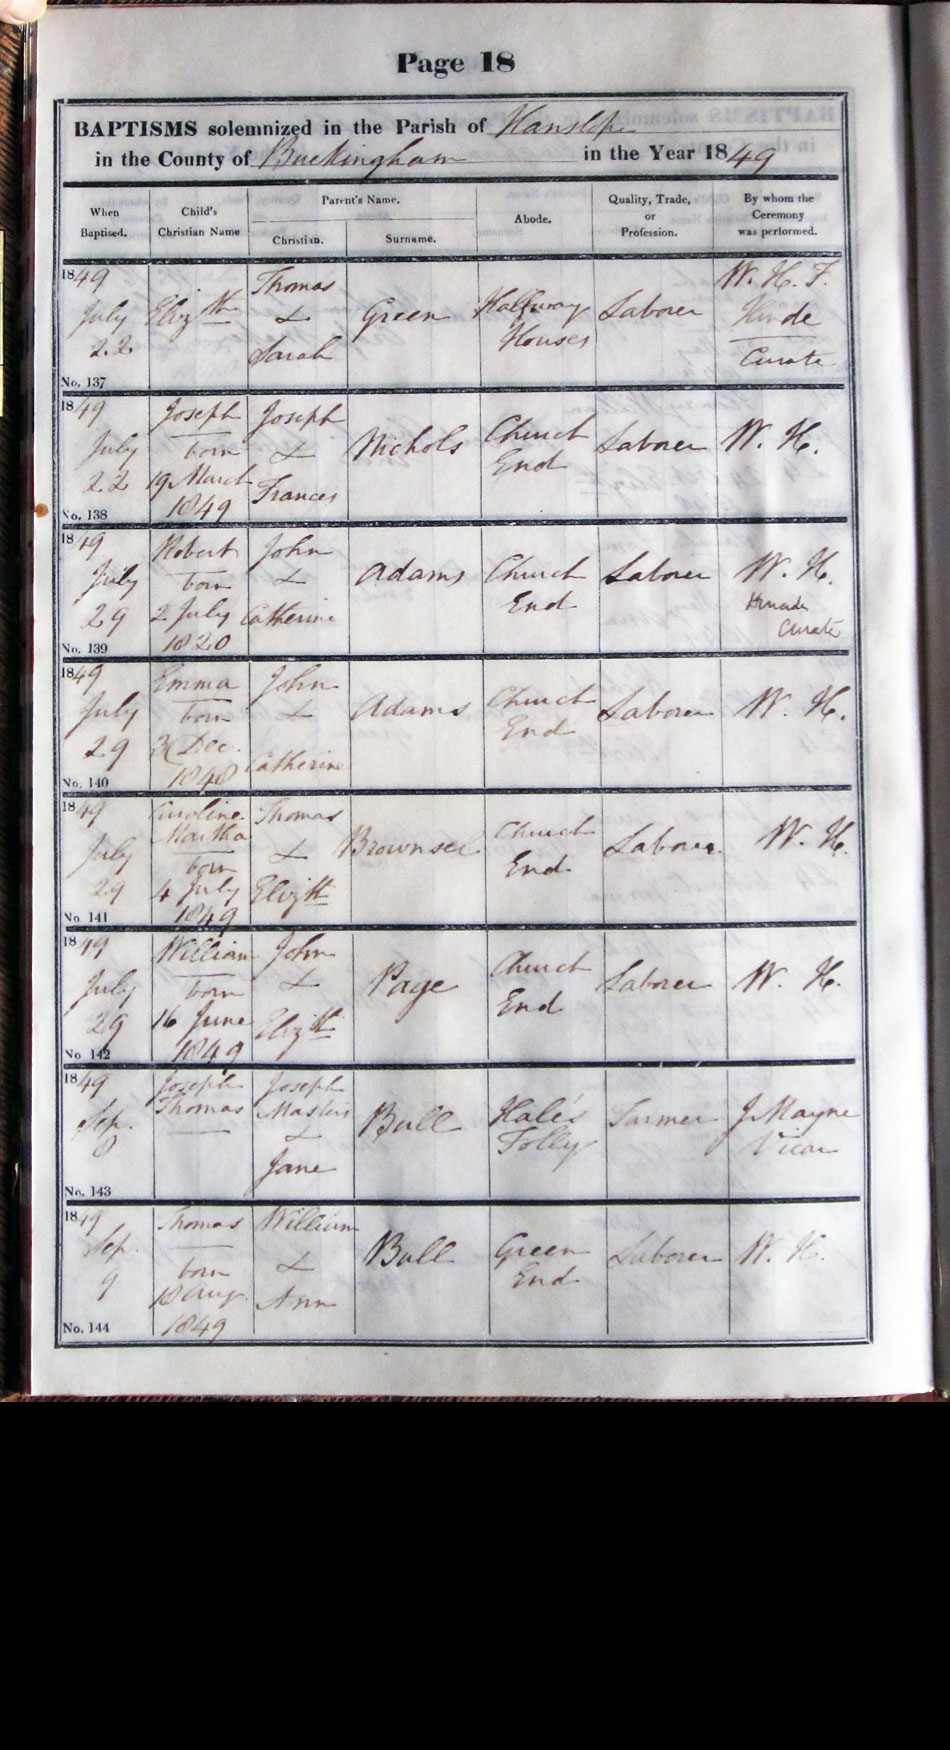 Page 18
BAPTISMS solemnized in the Parish of Hanslope
in the County of Buckingham in the Year 1849
When Baptised. Child's Christian Name Parent's Name. Christian. Surname. Abode. Quality, Trade, or Profession. By whom the Ceremony was performed.
1849
July
22
No. 137
Elizth
Thomas
&
Sarah
Green
Halfway
Houses
Laborer
W. H. F.
Hinde
Curate
1849
July
22
No. 138
Joseph
born
19 March
1849
Joseph
&
Frances
Nichols
Church
End
Laborer
W. H.
1849
July
29
No. 139
Robert
born
2 July
1820
John
&
Catherine
Adams
Church
End
Laborer
W. H.
Curate
1849
July
29
No. 140
Emma
born
Dec.
1848
John
&
Catherine
Adams
Church
End
Laborer
W. H.
1849
July
29
No. 141
Caroline
Martha
born
4 July
1849
Thomas
&
Elizth
Brownsel
Church
End
Laborer
W. H.
1849
July
29
No. 142
William
born
16 June
1849
John
&
Elizth
Page
Church
End
Laborer
W. H.
1849
Sep.
8
No. 143
Joseph
Thomas
Joseph
Masters
&
Jane
Bull
Hale's
Folly
Farmer
J. Mayne
Vicar
1849
Sep.
9
No. 144
Thomas
born
18 Aug.
1849
William
&
Ann
Bull
Green
End
Laborer
W. H.